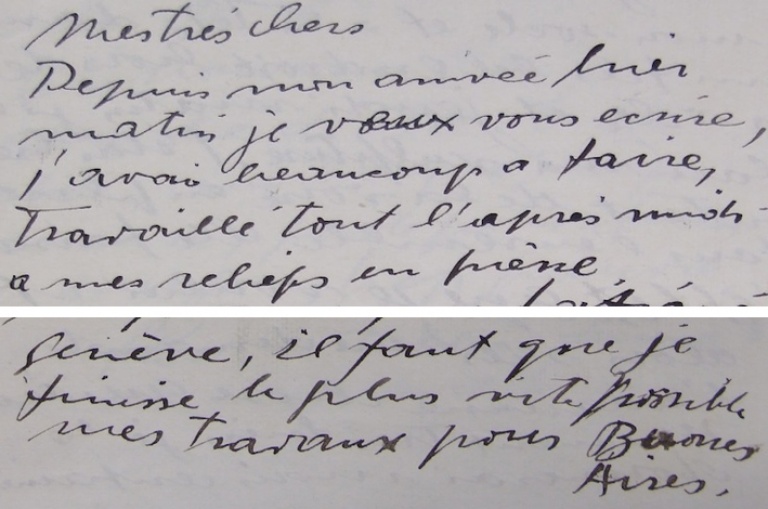 Mes très chers
Depuis mon arrivée hier
matin je veux vous ecrire,
j'avai beaucoup a faire,
travaillé tout l'après midi
a mes reliefs en pierre,
Genève, il faut que je
finisse le plus vite possible
mes travaux pour Buenos
Aires.